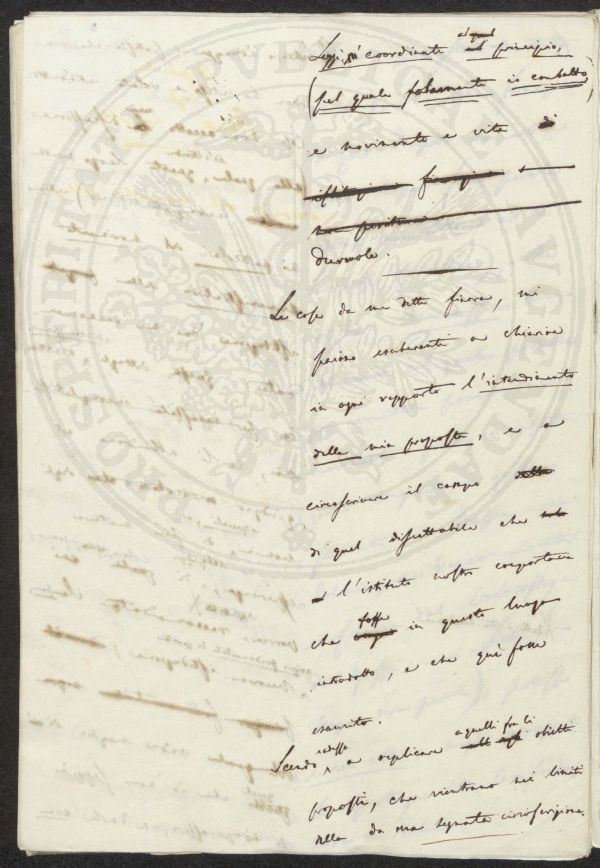 Leggi, coordinante al principio,
(pel quale solamente io combatto)
e movimento e vita di
durevole.
Le cose da me dette finora, mi
paiono esuberanti a chiarire
in ogni rapporto l'intendimento
della mia proposta, e a
circoscrivere il campo
di quel discuttabile che
l'istituto nostro comportava
che fosse in questo luogo
introdotto, e che quì fosse
esaurito.
Scendo adesso, a replicare a quelli fra li obietti
proposti, che rientrano nei limiti
della da me segnata circoscrizione.